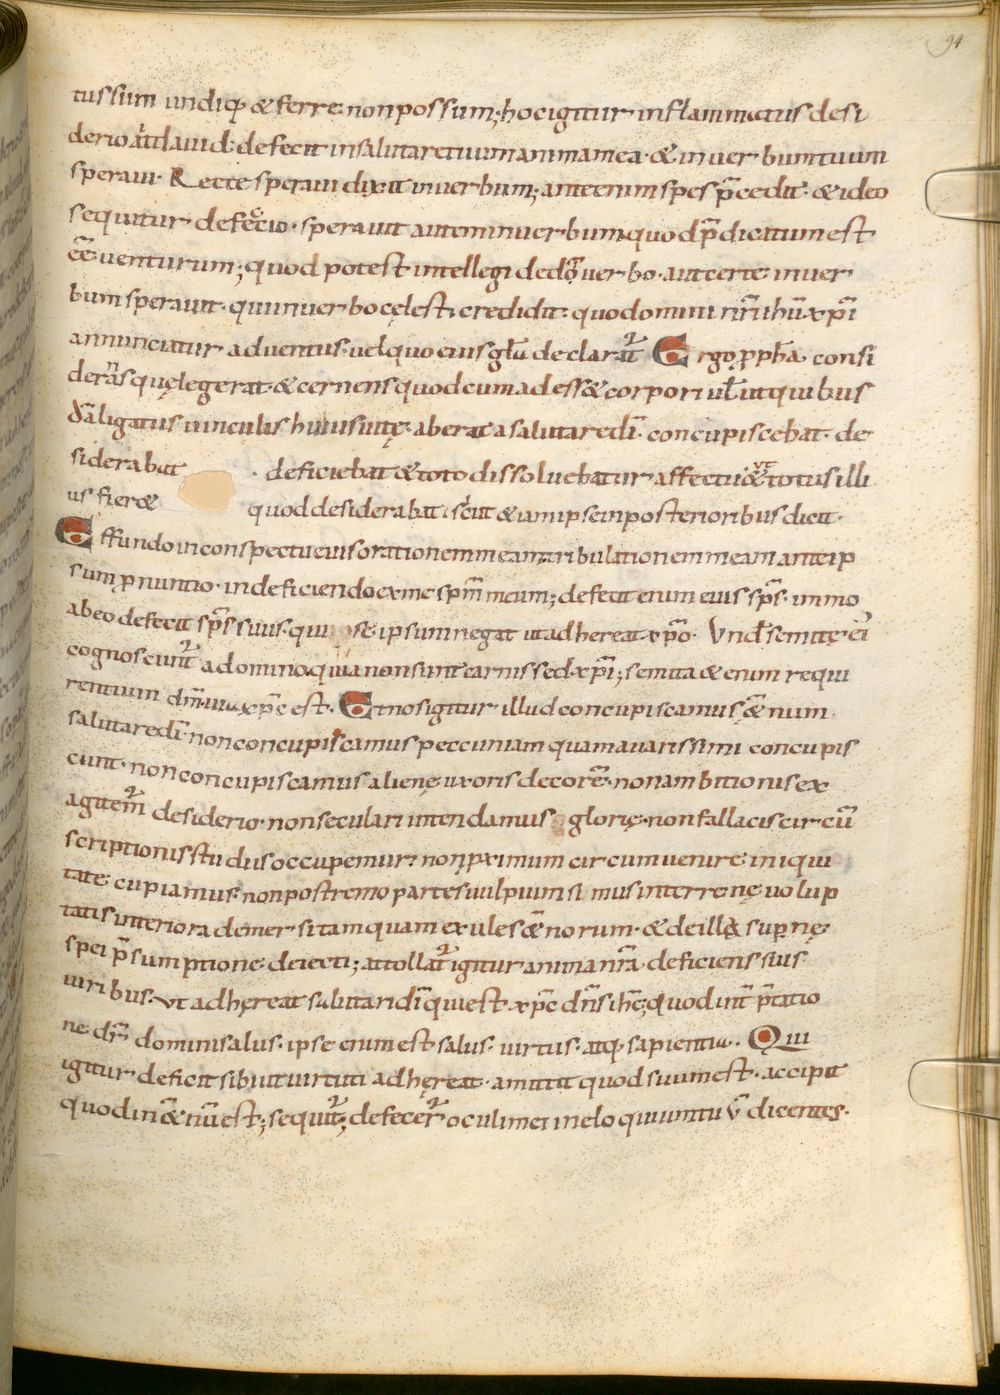 94
tus sum undiq; & ferre non possum; hoc igitur inflammatus desi
derio ait david: defecit in salutare tuum anima mea. & in verbum tuum
speravi. Recte speravi dixit in verbum; ante enim spes p̄cedit. & ideo
sequitur defectio. speravit autem in verbum quod p̄dicatum est
eē venturum; quod potest intellegi de dō verbo. aut certe in ver
bum speravit. qui in verbo cęlesti credidit. quo domini nr̄i ihū xp̄i
annunciatur adventus. vel quo eius gl̄a declarat᷑ Ergo ꝓph̄a consi
derans quę legerat. & cernens quod cum adess& corpori vl̄ ut quibus
dā ligatus vinculis huius vitę. aberat a salutare dī. concupiscebat. de
siderabat deficiebat & toto dissolvebatur affectu. ut & totus illi
us fier& quod desiderabat. sic̄ ut & iam ipse in posterioribus dicit.
Effundo in conspectu eius orationem meam. tribulationem meam ante ip
sum ꝓnuntio. in deficiendo ex me spm̄ meum; defecit enim eius sps̄. immo
ab eo defecit sps̄ suus. qui se ipsum negat ut adhereat xp̄o. Und& semitę ei᷒
cognoscunt᷑ a domino. quia non sunt carnis sed xp̄i; semita & enim requi
rentium dn̄m. via xp̄c est. Et nos igitur illud concupiscamus. & ęnum
salutare dī. non concupiscamus peccuniam quam avarissimi concupis
cunt. non concupiscamus alienę uxoris decorē. non ambitionis ex
agitem᷑ desiderio. non seculari intendamus glorię. non fallacis circū
scriptionis studiis occupemur. non ꝓximum circumvenire iniqui
tate cupiamus. non postremo partes vulpium simus in terrenę volup
tatis interiora demersi tamquam exules &ęnorum. & de illa supernę
spei p̄sumptione deiecti; attollat᷑ igitur anima nr̄a deficiens suis
viribus. ut adhęreat salutari dī qui est xp̄c dn̄s ihc̄; quod int̄p̄tatio
ne dr̄ domini salus. ipse enim est salus. virtus. atq; sapientia. Qui
igitur deficit sibi ut virtuti adhęreat. amittit quod suum est. accipit
quod in &ęnū est; sequit᷑; defecer᷑ oculi mei in eloquium tuū dicentes.